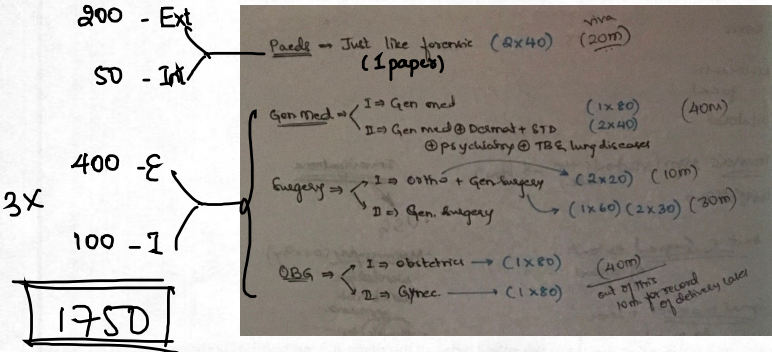 200 - Ext
50 - Int
viva
Paeds → Just like forensic (2x40) (20m)
(1 paper)
Gen Med ⇒ I ⇒ Gen med (1x80) (40m)
II ⇒ Gen med ⊕ Dermat + STD (2x40)
⊕ psychiatry ⊕ TB & lung diseases
400 - E
3x
100 - I
Surgery ⇒ I ⇒ Ortho + Gen. Surgery (2x20) (10m)
II ⇒ Gen. Surgery (1x60) (2x30) (30m)
OBG ⇒ I ⇒ obstetrics → (1x80) (40m)
II ⇒ Gynec. → (1x80)
out of this
10m for record
of delivery cases
1750